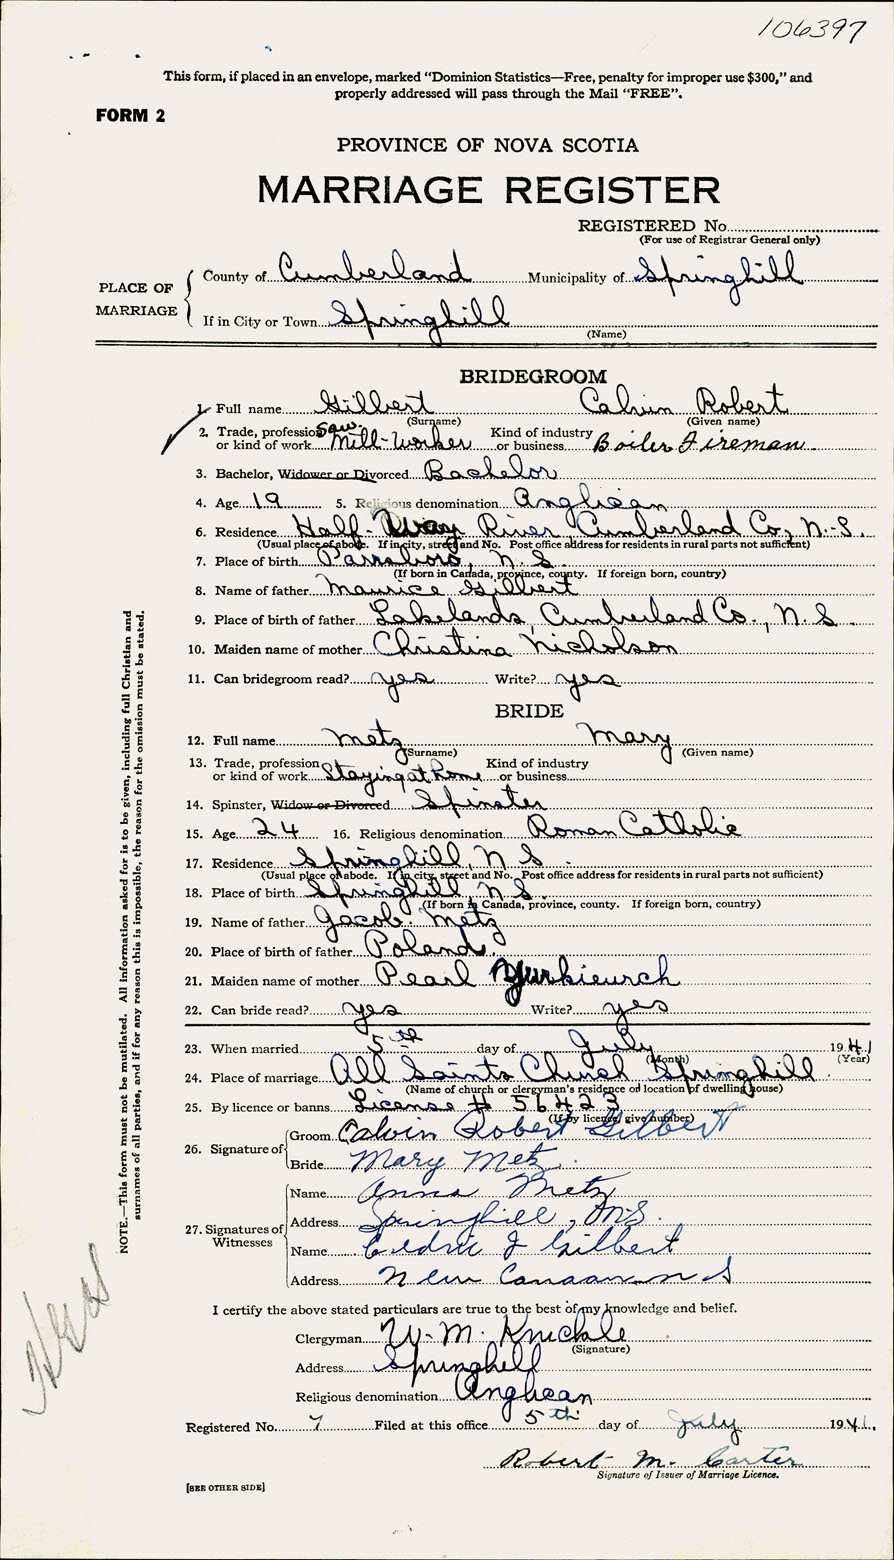 106397
This form, if placed in an envelope, marked “Dominion Statistics—Free, penalty for improper use $300,” and
properly addressed will pass through the Mail “FREE”.
FORM 2
PROVINCE OF NOVA SCOTIA
MARRIAGE REGISTER
REGISTERED No.
(For use of Registrar General only)
PLACE OF MARRIAGE
County of Cumberland Municipality of Springhill
If in City or Town Springhill
(Name)
BRIDEGROOM
1. Full name Gilbert Calvin Robert
(Surname) (Given name)
2. Trade, profession or kind of work Saw Mill-Worker Kind of industry or business Boiler Fireman
3. Bachelor, Widower or Divorced Bachelor
4. Age 19 5. Religious denomination Anglican
6. Residence Half-Way River Cumberland Co, N.S.
(Usual place of abode. If in city, street and No. Post office address for residents in rural parts not sufficient)
7. Place of birth Parrsboro, N.S.
(If born in Canada, province, county. If foreign born, country)
8. Name of father Maurice Gilbert
9. Place of birth of father Lakelands, Cumberland Co., N.S.
10. Maiden name of mother Christina Nicholson
11. Can bridegroom read? yes Write? yes
BRIDE
12. Full name Metz Mary
(Surname) (Given name)
13. Trade, profession or kind of work Staying at home Kind of industry or business
14. Spinster, Widow or Divorced Spinster
15. Age 24 16. Religious denomination Roman Catholic
17. Residence Springhill, N.S.
(Usual place of abode. If in city, street and No. Post office address for residents in rural parts not sufficient)
18. Place of birth Springhill, N.S.
(If born in Canada, province, county. If foreign born, country)
19. Name of father Jacob Metz
20. Place of birth of father Poland
21. Maiden name of mother Pearl
22. Can bride read? yes Write? yes
23. When married 5th day of July 1941
(Month) (Year)
24. Place of marriage All Saints Church Springhill
(Name of church or clergyman's residence or location of dwelling house)
25. By licence or banns License # 56423
(If by licence, give number)
26. Signature of
Groom Calvin Robert Gilbert
Bride Mary Metz
27. Signatures of Witnesses
Name Anna Metz
Address Springhill, N.S.
Name Cedric J Gilbert
Address New Canaan N S
I certify the above stated particulars are true to the best of my knowledge and belief.
Clergyman W. M. Knickle
(Signature)
Address Springhill
Religious denomination Anglican
Registered No. 7 Filed at this office 5th day of July 1941.
Robert M. Carter
Signature of Issuer of Marriage Licence.
[SEE OTHER SIDE]
NOTE.—This form must not be mutilated. All information asked for is to be given, including full Christian and
surnames of all parties, and if for any reason this is impossible, the reason for the omission must be stated.